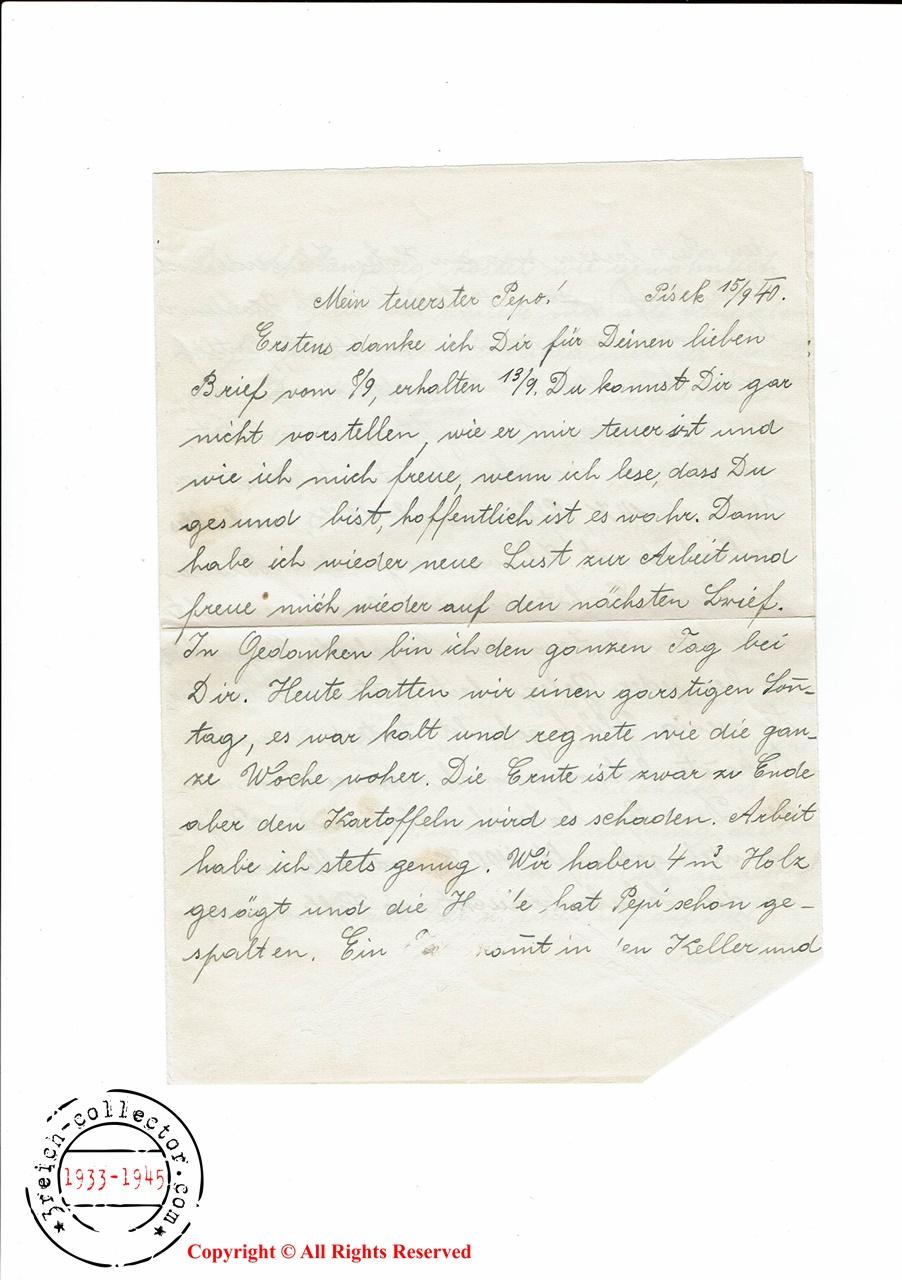 Mein teuerster Pepo! Písek 15/9 40.
Erstens danke ich Dir für Deinen lieben
Brief vom 8/9, erhalten 13/9. Du kannst Dir gar
nicht vorstellen, wie er mir teuer ist und
wie ich mich freue, wenn ich lese, dass Du
gesund bist, hoffentlich ist es wahr. Dann
habe ich wieder neue Lust zur Arbeit und
freue mich wieder auf den nächsten Brief.
In Gedanken bin ich den ganzen Tag bei
Dir. Heute hatten wir einen garstigen Son̄-
tag, es war kalt und regnete wie die gan-
ze Woche woher. Die Ernte ist zwar zu Ende
aber den Kartoffeln wird es schaden. Arbeit
habe ich stets genug. Wir haben 4 m³ Holz
gesägt und die hat Pepi schon ge-
spalten. Ein kom̄t in Keller und
3reich-collector.com
1933-1945
Copyright © All Rights Reserved